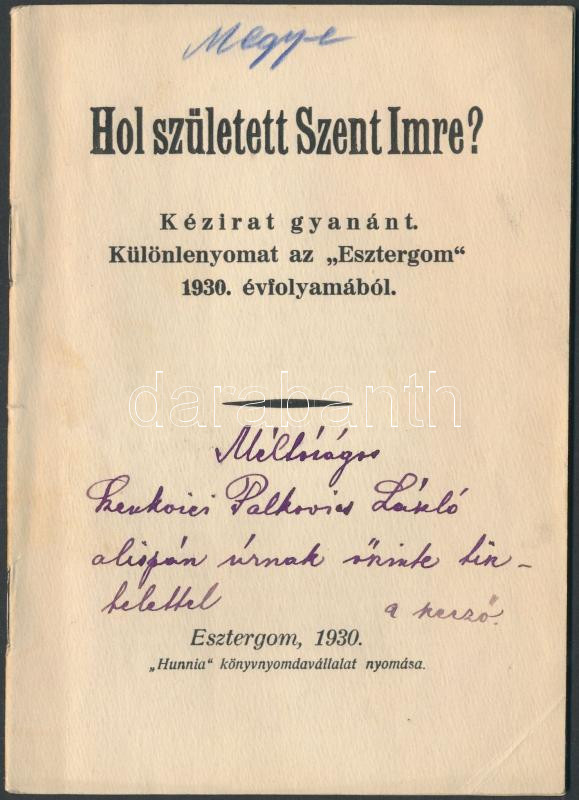 Megye
Hol született Szent Imre?
Kézirat gyanánt.
Különlenyomat az „Esztergom“
1930. évfolyamából.
darabanth
Méltóságos
Palkovics László
alispán úrnak őszinte tisz-
telettel a szerző.
Esztergom, 1930.
„Hunnia“ könyvnyomdavállalat nyomása.